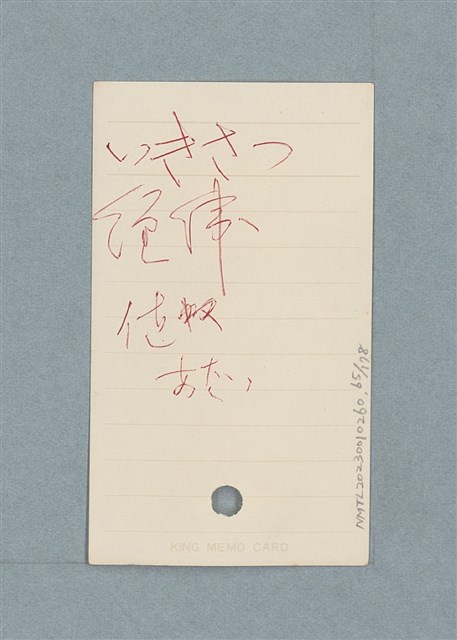 いきさつ
経緯
値
あたい
KING MEMO CARD
NMTL20230010260, 65/178